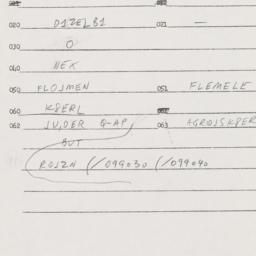 020 DIZELBI 021 —
030 O
040 NEK
050 FLOJMEN 051 FLEMELE
060 K8ERL
062 JU,DER Q-AP, 063 AGROJSK8ER
BUT
ROJZN (/099030 (/099040